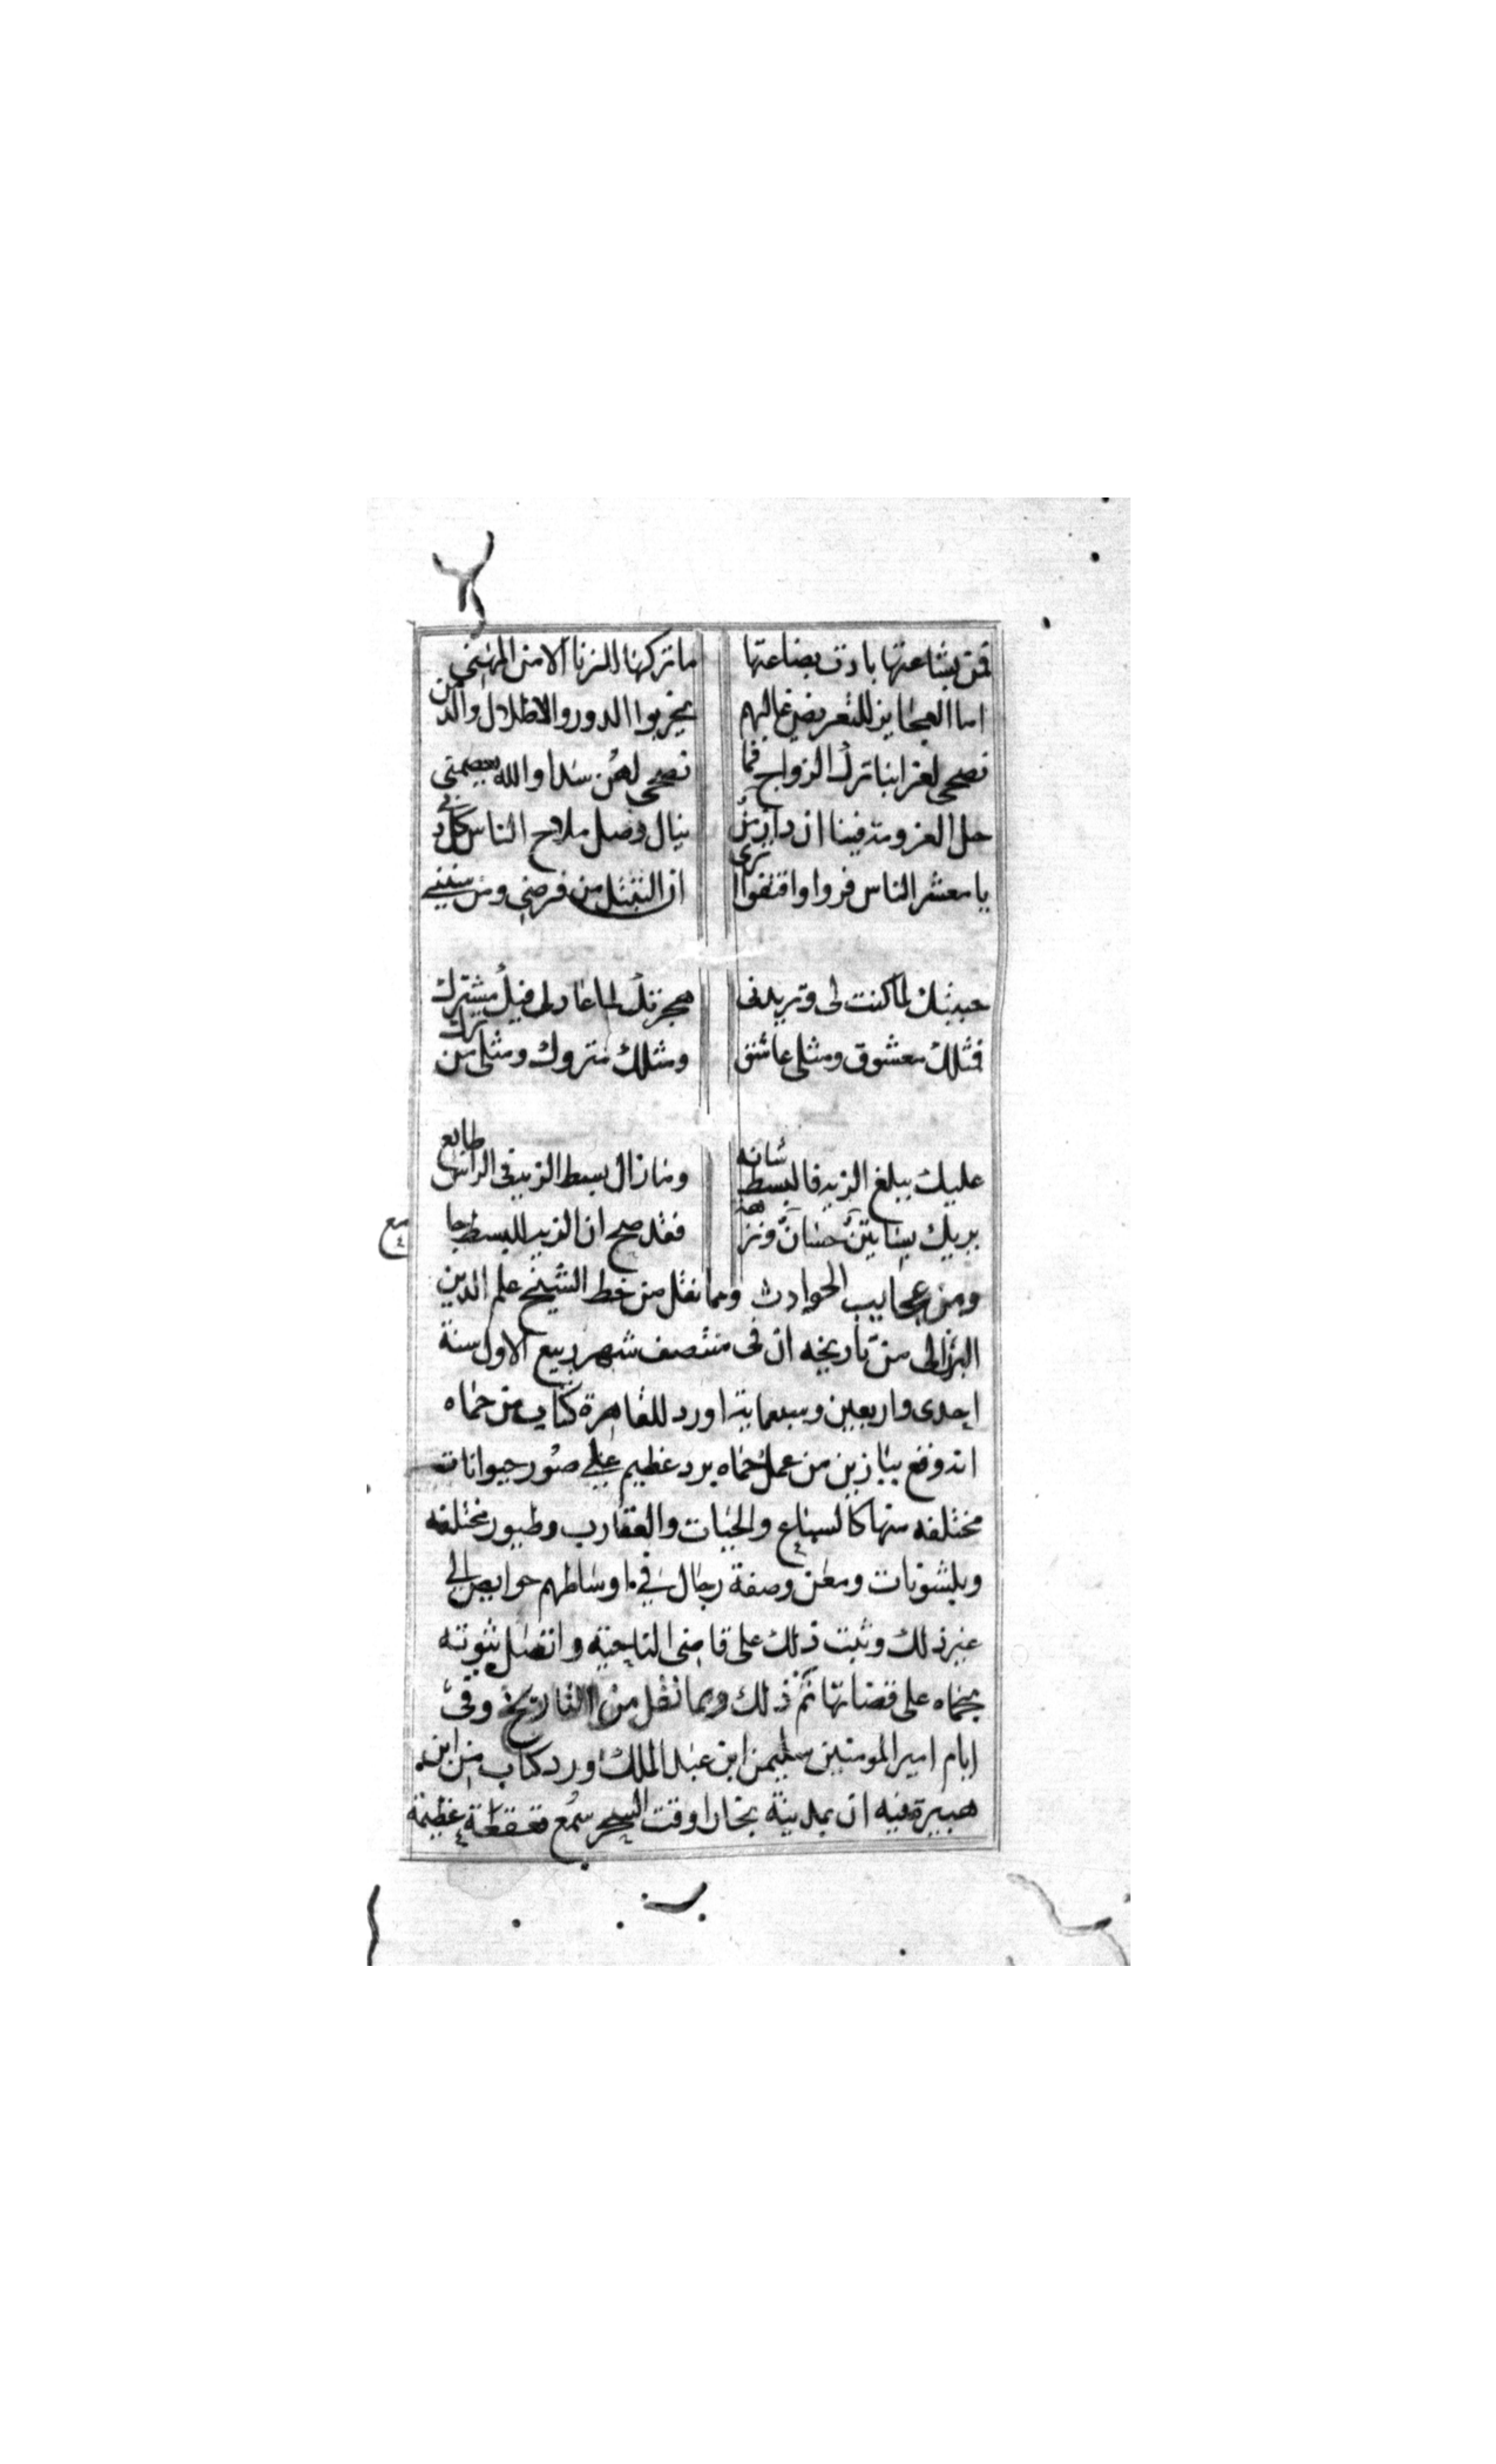 فمن بشاعتها بادت بضاعتها ما تركها للزنا الا من المهن
اما العجايز للتعريض غالبهم يخربوا الدور والاطلال والدمن
نصحي لعزابنا ترك الزواج فما نصحي لهن سدا والله يعصمني
حل العزوبة فينا ان دازمن ينال وصل ملاح الناس كل
يا معشر الناس فروا واقتفوا اثرى ان التبتل من فرضي ومن سنني
حبيبك لما كنت لى وتريدنى هجرتك لما عاد لى فيك مشترك
فمثلك معشوق ومثلى عاشق ومثلك متروك ومثلى من ترك
عليك ببلغ الزيد فالبسط شانه وما زال بسط الزيد فى الراس طايع
يريك بساتين حسان ونزهة فقد صح ان الزيد للبسط جامع
ومن عجايب الحوادث ومما نقل من خط الشيخ علم الدين
البرزالى من تاريخه ان فى منتصف شهر ربيع الاول سنة
احدى واربعين وسبعماية اورد للقاهرة كتاب من حماه
انه وقع ببازين من عمل حماه برد عظيم على صور حيوانات
مختلفه منها كالسباع والحيات والعقارب وطيور مختلفه
وبلشونات ومعن وصفة رجال فى اوساطهم حوايص الى
غير ذلك وثبت ذلك على قاضى الناحية واتصل ثبوته
بحماه على قضاتها تم ذلك ومما نقل من التاريخ وفى
ايام امير المومنين سليمن ابن عبد الملك ورد كتاب من ابن
هبيرة فيه ان بمدينة بخارا وقت السحر سمع قعقعة عظيمة